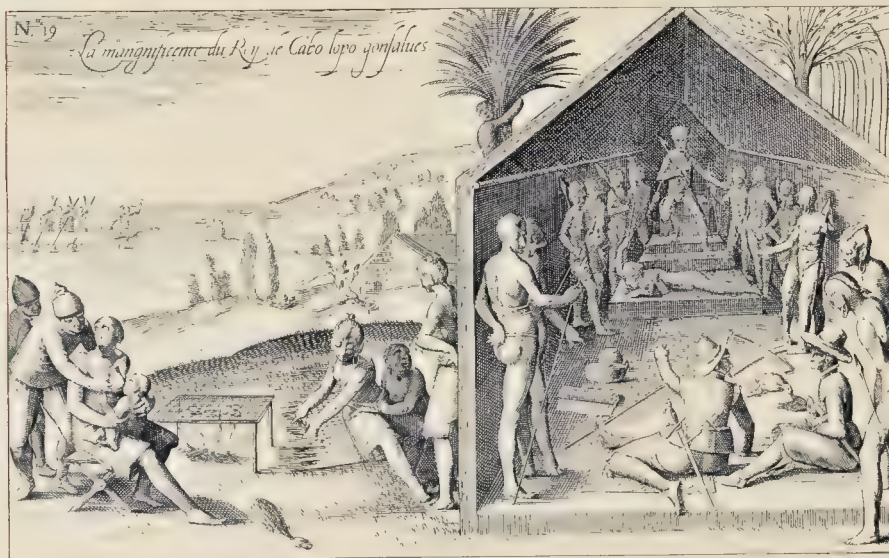 N.º 19
La mangnificence du Roy de Cabo lopo gonsalues